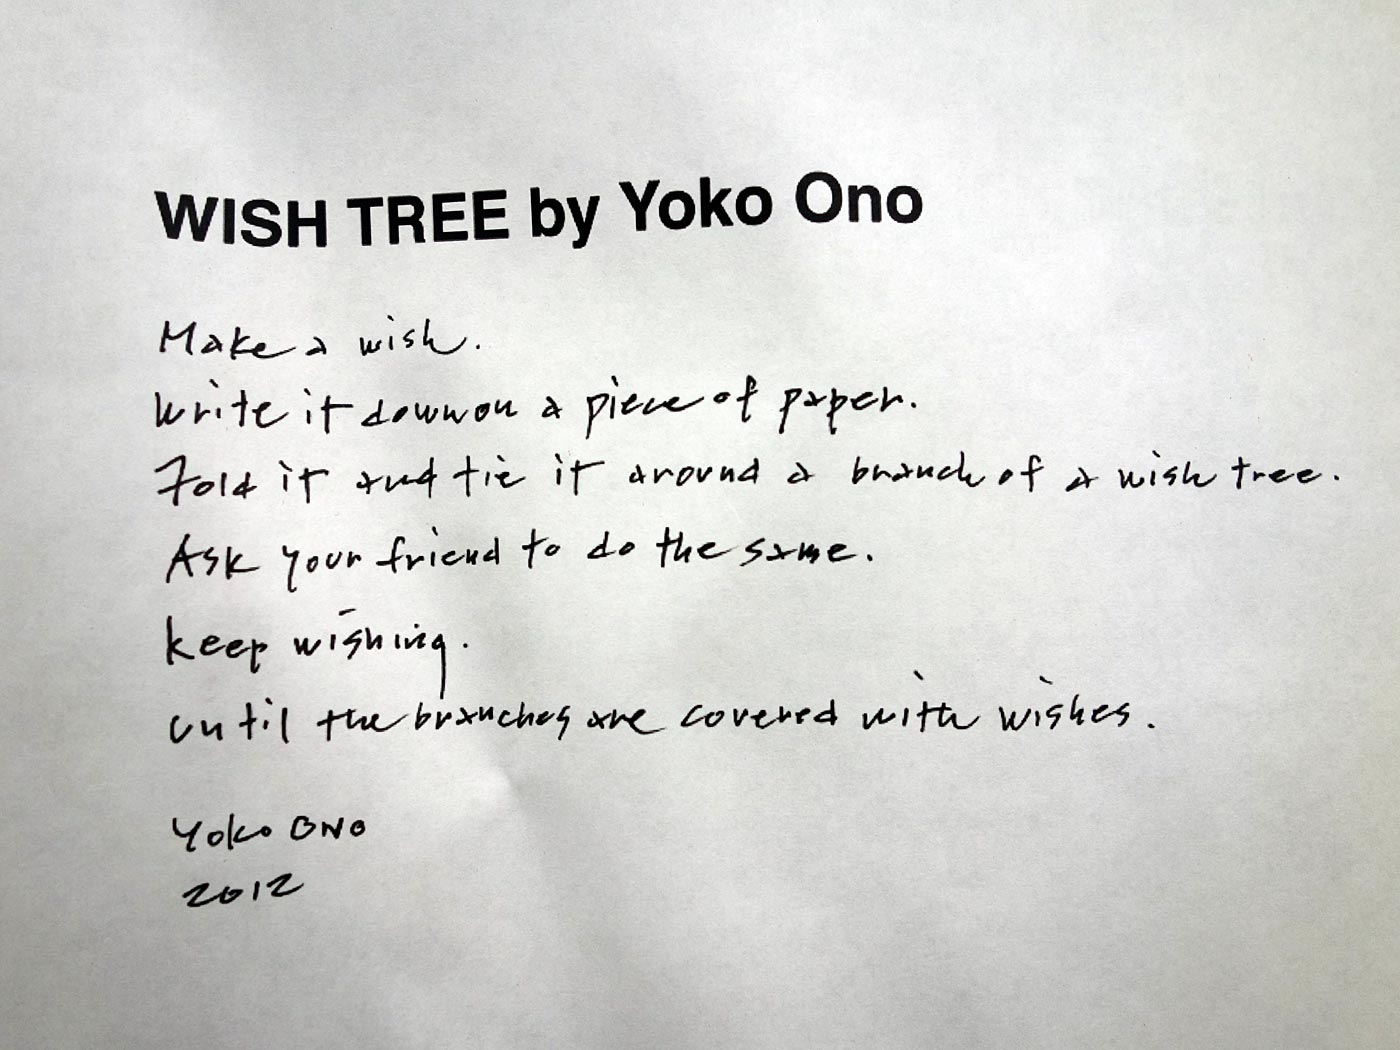 WISH TREE by Yoko Ono
Make a wish.
Write it down on a piece of paper.
Fold it and tie it around a branch of a wish tree.
Ask your friend to do the same.
Keep wishing.
until the branches are covered with wishes.
Yoko ONO
2012